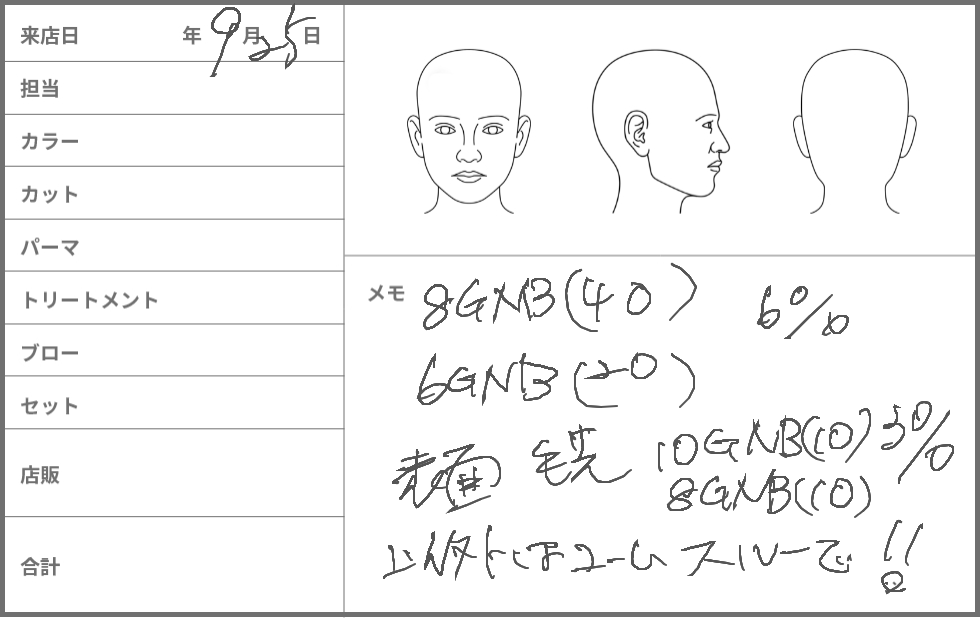 来店日 年 9月25日
担当
カラー
カット
パーマ
トリートメント
ブロー
セット
店販
合計
メモ 8GNB(40) 6%
6GNB(20)
表面 毛先 10GNB(10) 3%
8GNB(10)
以外はコームスルーで!!